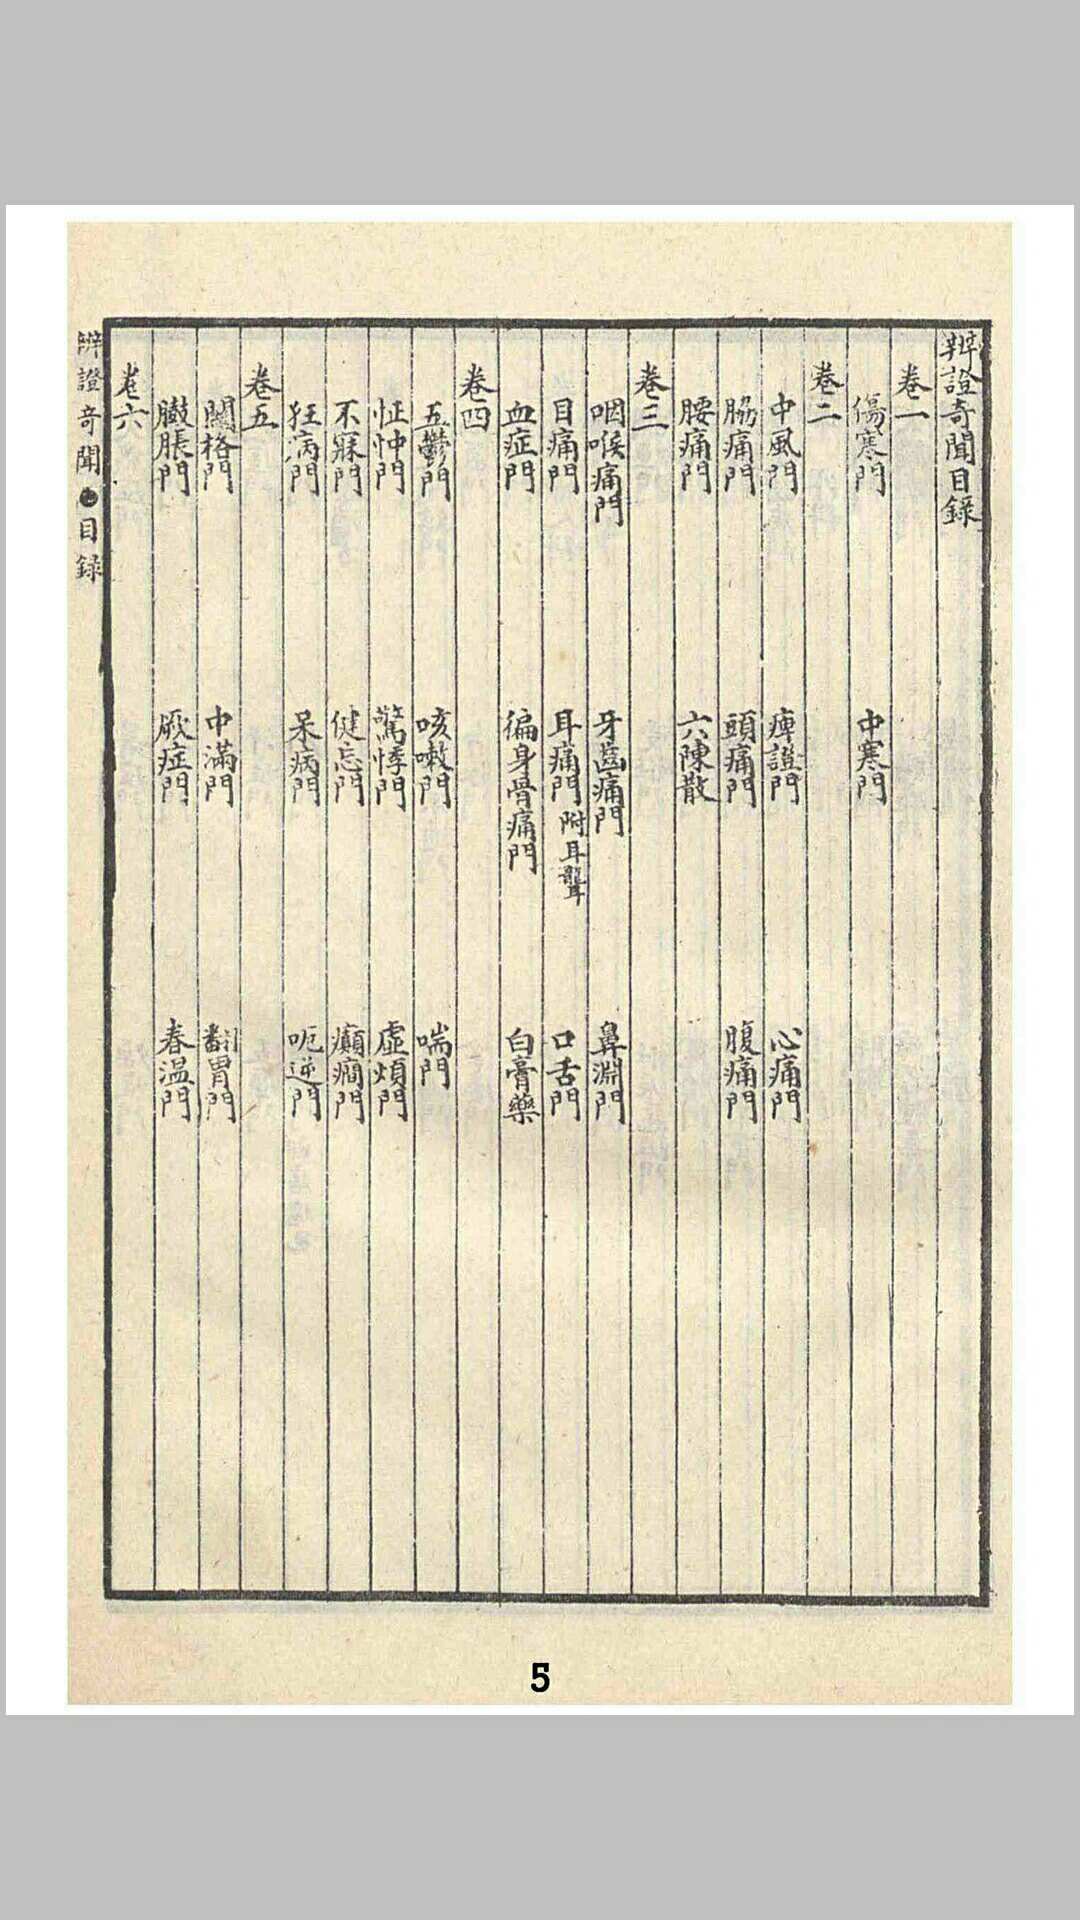 辨證奇聞目錄
卷一
傷寒門 中寒門
卷二
中風門 痺證門 心痛門
脇痛門 頭痛門 腹痛門
腰痛門 六陳散
卷三
咽喉痛門 牙齒痛門 鼻淵門
目痛門 耳痛門附耳聾 口舌門
血症門 徧身骨痛門 白膏藥
卷四
五鬱門 咳嗽門 喘門
怔忡門 驚悸門 虛煩門
不寐門 健忘門 癲癇門
狂病門 呆病門 呃逆門
卷五
關格門 中滿門 翻胃門
臌脹門 厥症門 春温門
卷六
辨證奇聞●目録
5